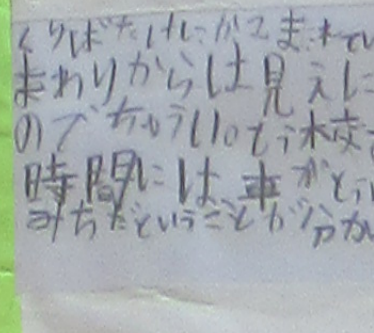 くりばたけにかこまれてい
まわりからは見えに
のでちゅうい。とう校
時間には車がとう
みちだということが分か